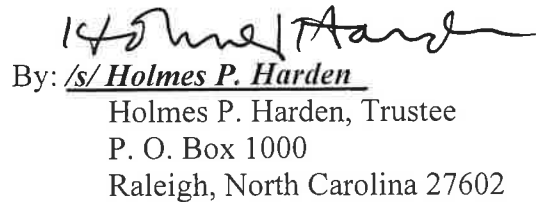 Holmes P Harden
By: /s/ Holmes P. Harden
Holmes P. Harden, Trustee
P. O. Box 1000
Raleigh, North Carolina 27602